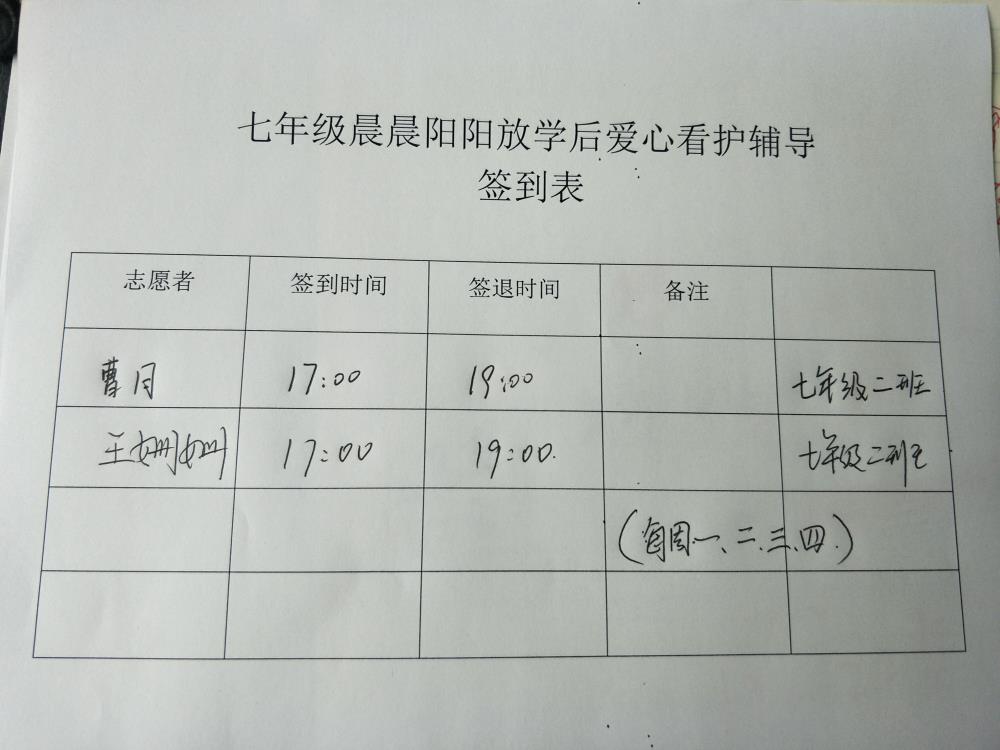 七年级晨晨阳阳放学后爱心看护辅导
签到表
志愿者 签到时间 签退时间 备注
曹月 17:00 19:00 七年级二班
王姗姗 17:00 19:00. 七年级二班
(每周一、二、三、四.)